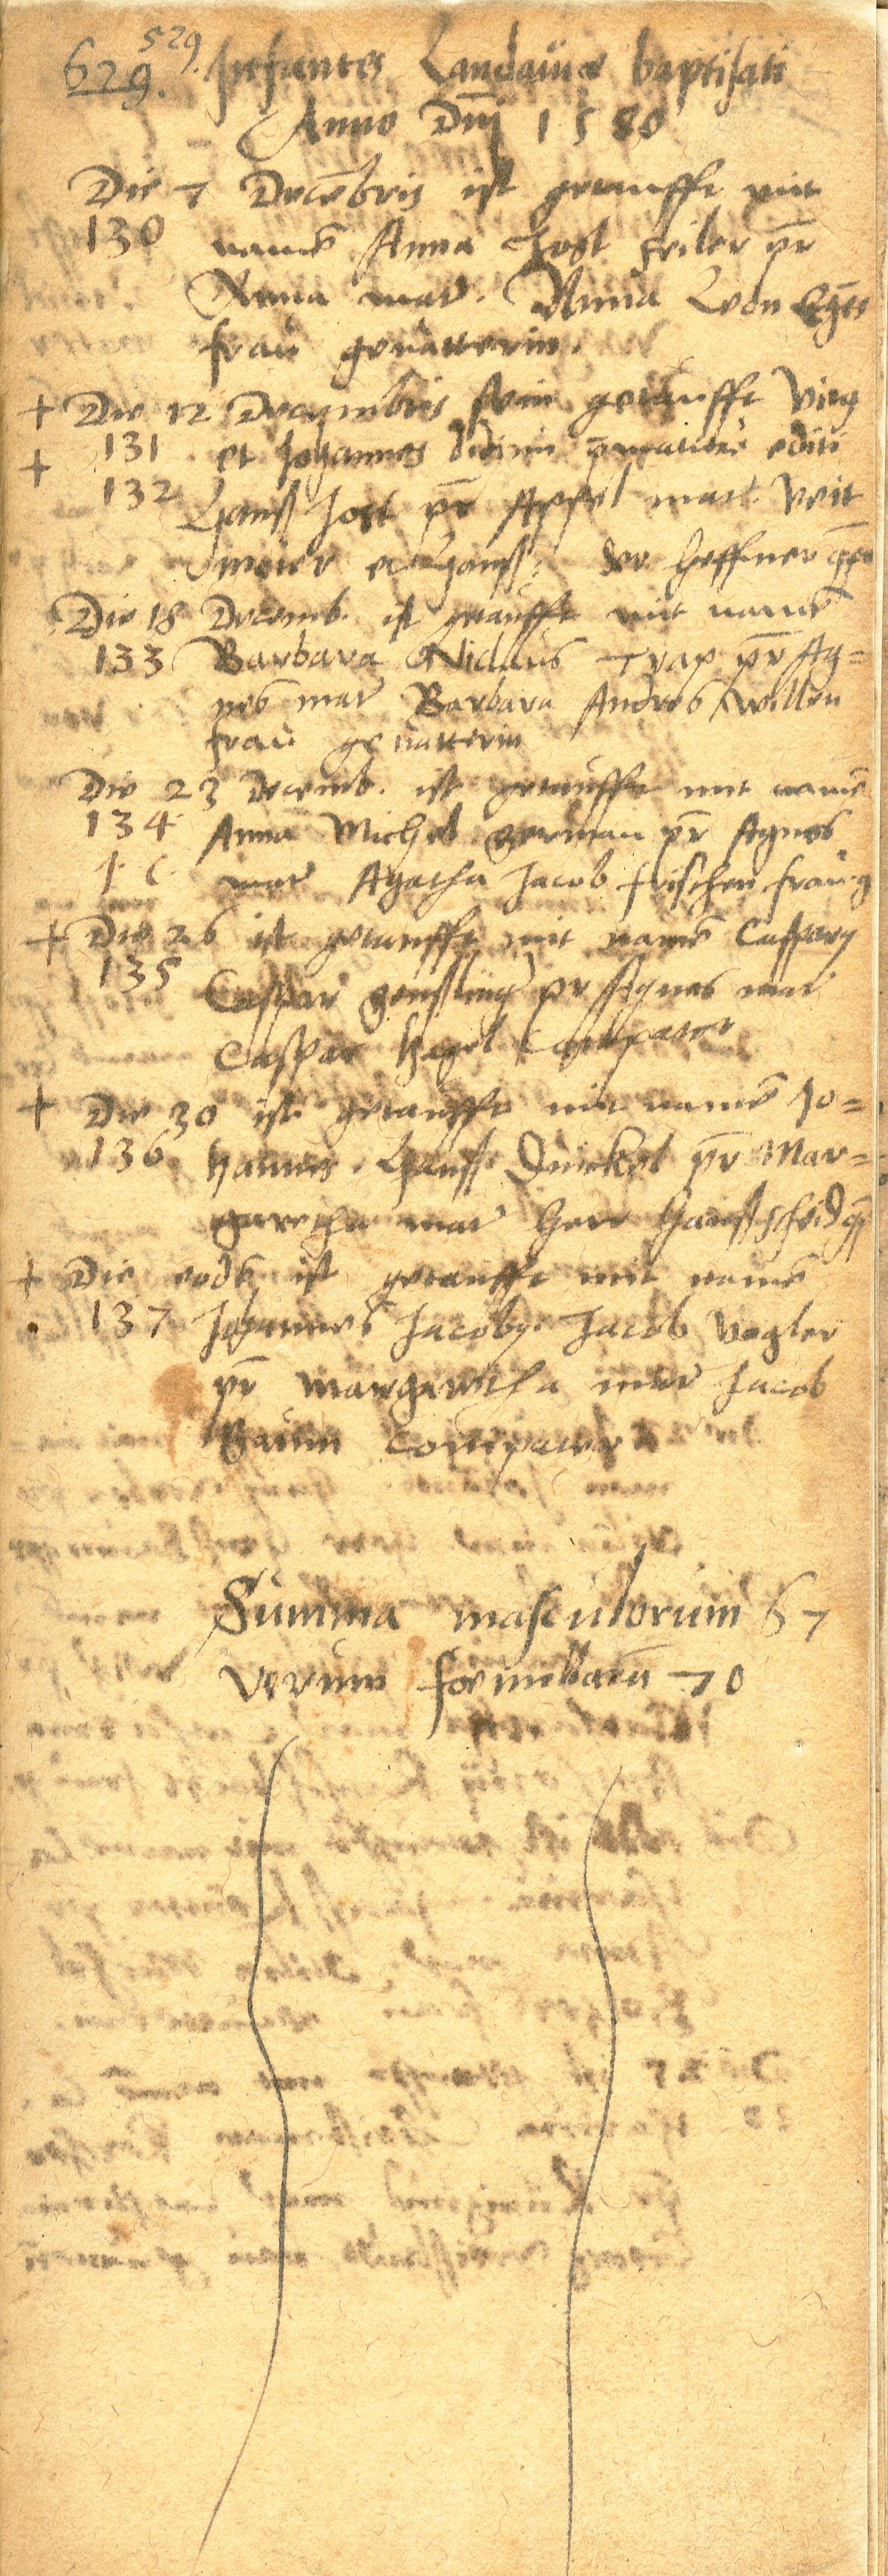 529.
629. Infantes Landauiæ baptisati
Anno Dñi 1580
Die 7 Decẽbris ist getaufft mit
130 namẽ Anna Jost feiler pr̃
Anna mat̃. Anna Leon
frau geuatterin.
+ Die 12 Decembris sein getaufft Vitꝯ
+ 131 et Johannes editi
132 Hanß Jost pr̃ Apfel mat̃. Veit
meier et Hanß der heffner
Die 18 Decemb. ist getaufft mit namẽ
133 Barbara Niclaus Trap pr̃ Ag=
nes mat̃ Barbara Andres Willen
frau geuatterin
Die 23 Decemb. ist getaufft mit namẽ
134 Anna Michel german pr̃ Agnes
mat̃ Agatha Jacob frischen frau g
+ Die 26 ist getaufft mit namẽ Casparꝯ
135 Caspar genßling pr̃ Agnes mat̃
Caspar Compater
+ Die 30 ist getaufft mit namẽ Jo=
136 hannes. Hanß Dinckel pr̃ Mar=
garetha mat̃ herr Hanß
+ Die eodẽ ist getaufft mit namẽ
137 Johannes Jacobꝯ. Jacob Vogler
pr̃ Margaretha mat̃ Jacob
Baum compater
Summa masculorum 67
Verum foemellarũ 70